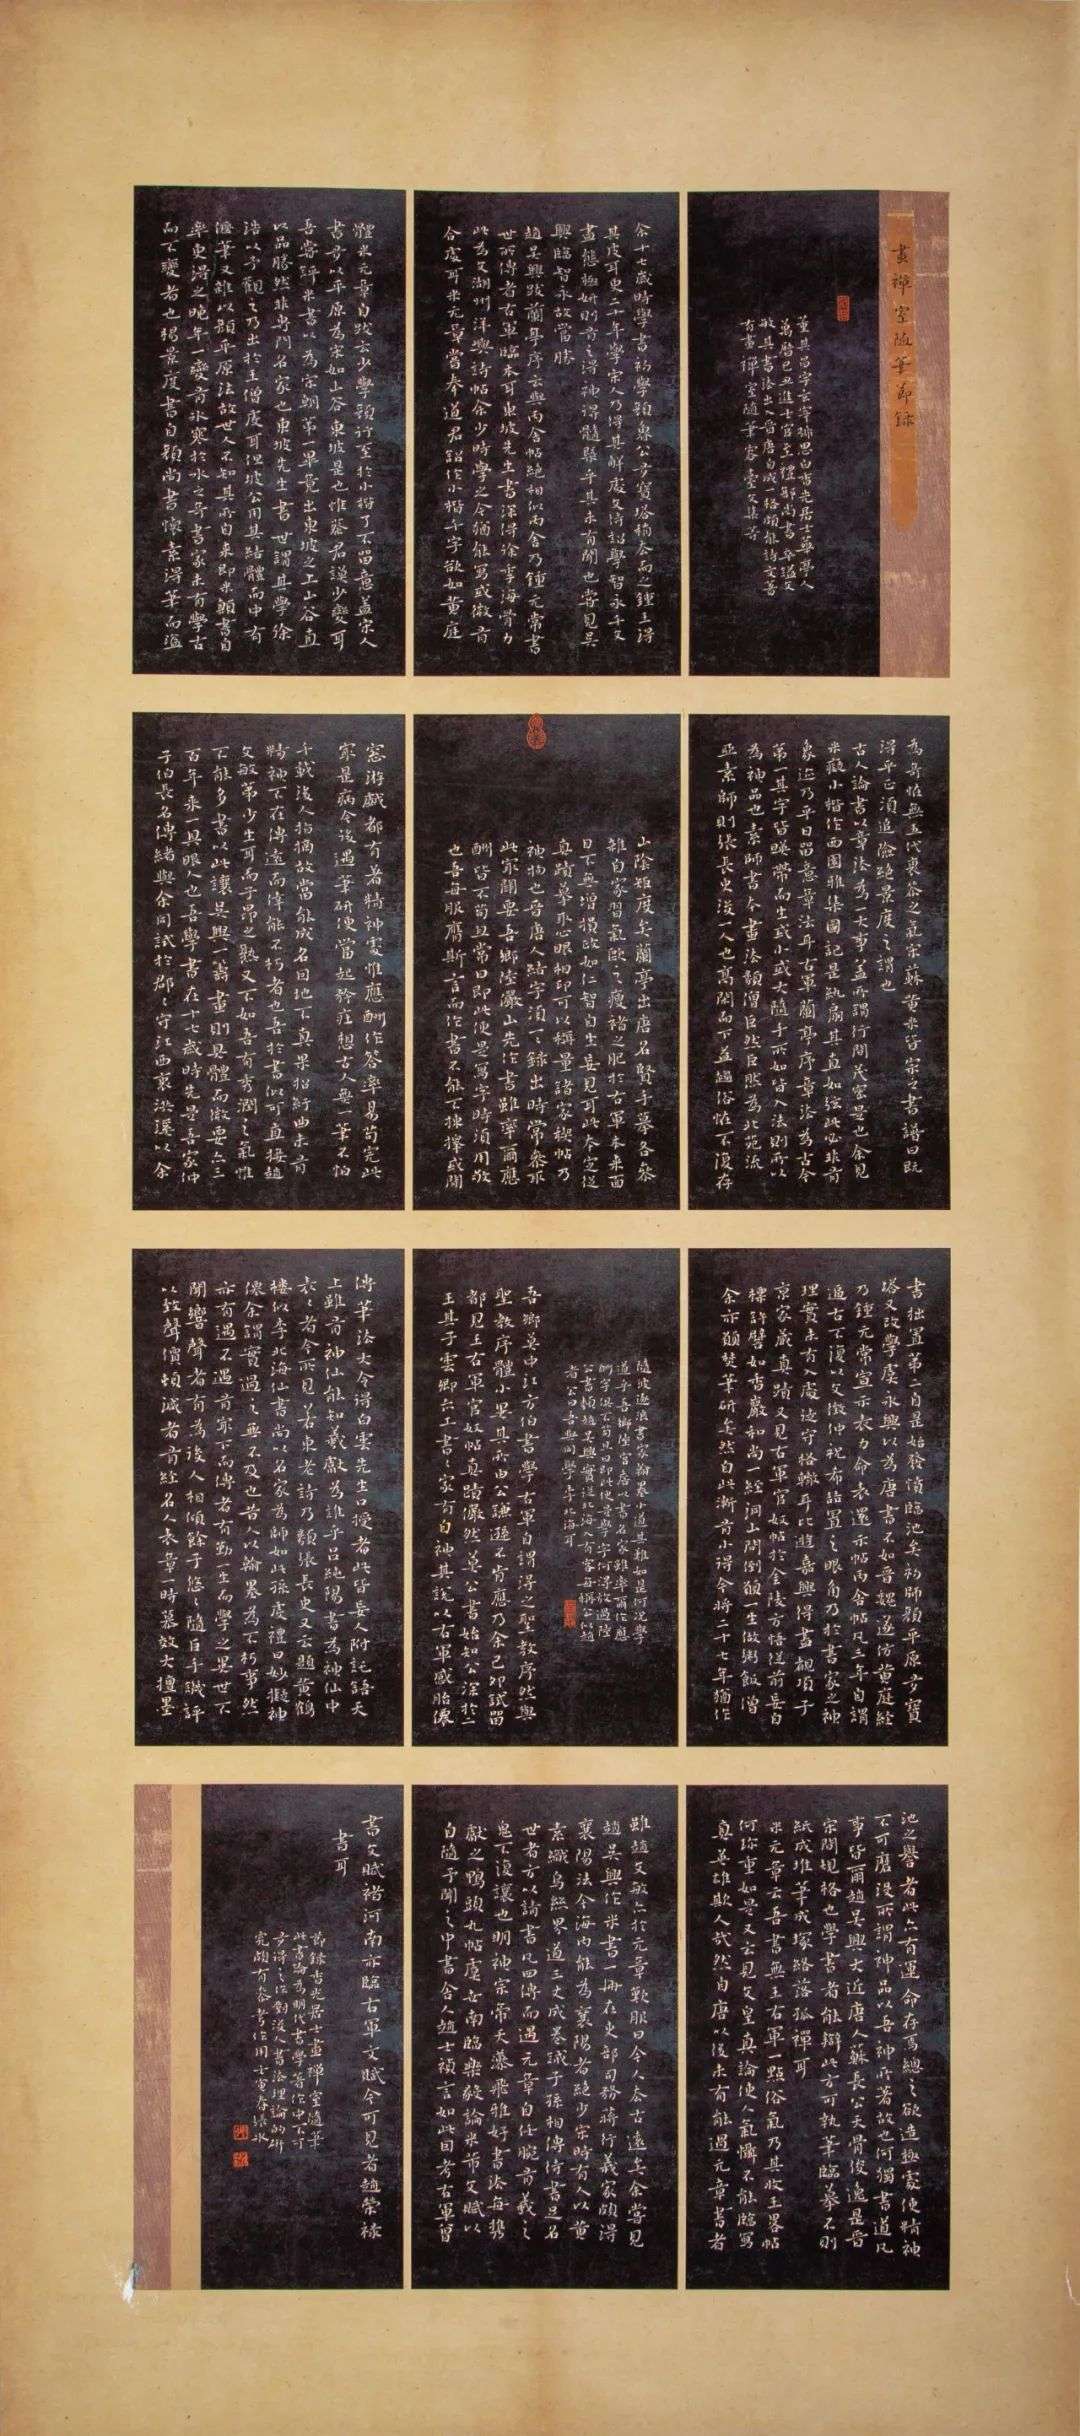 畫禪室隨筆節錄
董其昌字玄宰號思白香光居士華亭人
萬曆己丑進士官至禮部尚書卒謚文
敏其書法出入晉唐自成一格頗能詩文著
有畫禪室隨筆容臺文集等
余十七歲時學書初學顏魯公多寶塔稍去而之鍾王得
其皮耳更二十年學宋人乃得其解處文待詔學智永千文
盡態極妍則有之得神得髓槩乎其未有聞也嘗見吳
興臨智永故當勝
趙吳興跋蘭亭序云與丙舍帖絕相似丙舍乃鍾元常書
世所傳者右軍臨本耳東坡先生書深得徐季海骨力
此為文湖州洋嶼詩帖余少時學之今猶能寫或微有
合處耳米元章嘗奉道君詔作小楷千字欲如黃庭
體米元章自跋云少學顏行至於小楷了不留意蓋宋人
書多以平原為宗如山谷東坡是也惟蔡君謨少變耳
吾嘗評米書以為宋朝第一畢竟出東坡之上山谷直
以品勝然非專門名家也東坡先生書世謂其學徐
浩以予觀之乃出於王僧虔耳但坡公用其結體而中有
偃筆又雜以顏平原法故世人不知其所自來即米顛書自
率更得之晚年一變有冰寒於水之奇書家未有學古
而不變者也楊景度書自顏尚書懷素得筆而溢
為奇怪無五代衰苶之氣宋蘇黃米皆宗之書譜曰既
得平正須追險絕景度之謂也
古人論書以章法為一大事蓋所謂行間茂密是也余見
米癡小楷作西園雅集圖記是紈扇其直如弦此必非有
象迹乃平日留意章法耳右軍蘭亭序章法為古今
第一其字皆映帶而生或小或大隨手所如皆入法則所以
為神品也素師書本畫法類僧巨然巨然為北苑流
亞素師則張長史後一人也高閑而下益趨俗怪不復存
山陰矩度矣蘭亭出唐名賢手摹各參
雜自家習氣歐之瘦褚之肥於右軍本來面
目不無增損政如仁智自生妄見耳此本定從
真蹟摹取心眼相印可以稱量諸家禊帖乃
神物也晉唐人結字須一一錄出時常參取
此最關要吾鄉陸儼山先作書雖率爾應
酬皆不苟且常曰即此便是寫字時須用敬
也吾每服膺斯言而作書不能不揀擇或閒
窓游戲都有著精神處惟應酬作答率易苟完此
最是病今後遇筆研便當起矜莊想古人無一筆不怕
千載後人指摘故當能成名因地不真果招紆曲未有
精神不在傳遠而倖能不朽者也吾於書似可直接趙
文敏第少生耳而子昂之熟又不如吾有秀潤之氣惟
不能多書以此讓吳興一籌畫則具體而微要亦三
百年來一具眼人也吾學書在十七歲時先是吾家仲
子伯長名傳緒與余同試於郡々守江西衷洪溪以余
書拙置第二自是始發憤臨池矣初師顏平原多寶
塔又改學虞永興以為唐書不如晉魏遂仿黃庭經
乃鍾元常宣示表力命表還示帖丙舍帖凡三年自謂
逼古不復以文徵仲祝希喆置之眼角乃於書家之神
理實未有入處徒守格轍耳比遊嘉興得盡覩項子
京家藏真蹟又見右軍官奴帖於金陵方悟從前妄自
標評譬如香嚴和尚一經洞山問倒願一生做粥飯僧
余亦願焚筆研矣然自此漸有小得今將二十七年猶作
隨波逐浪書家翰墨小道其難如是何況學
道乎吾鄉陸宮詹以書名家雖率爾作應
酬字俱不苟且曰即此便是學字何得放過陸
公書類趙吳興實從北海入有客每稱公似趙
者公曰吾與同學李北海耳
吾鄉莫中江方伯書學右軍自謂得之聖教序然與
聖教序體小異其所由公謙遜不肯應乃余己卯試留
都見王右軍官奴帖真蹟儼然莫公書始知公深於二
王其子雲卿亦工書々家有自神其說以右軍感胎僊
傳筆法大令得白雲先生口授者此皆妄人附託語天
上雖有神仙能知羲獻為誰乎呂純陽書為神仙中
表々者今所見若東老詩乃類張長史又云題黃鶴
樓似李北海仙書尚以名家為師如此孫虔禮曰妙擬神
僊余謂實過之無不及也昔人以翰墨為不朽事然
亦有遇不遇有最下而傳者有勤一生而學之異世不
聞響聲者有為後人相傾餘子悠々隨巨手譏評
以致聲價頓減者有經名人表章一時慕效大擅墨
池之譽者此亦有運命存焉總之欲造極處使精神
不可磨沒所謂神品以吾神所著故也何獨書道凡
事皆爾趙吳興大近唐人蘇長公天骨俊逸是晉
宋間規格也學書者能辯此方可執筆臨摹不則
紙成堆筆成塚終落狐禪耳
米元章云吾書無王右軍一點俗氣乃其收王畧帖
何珍重如是又云見文皇真論使人氣懾不能臨寫
真英雄欺人哉然自唐以後未有能過元章書者
雖趙文敏亦於元章歎服曰今人去古遠矣余嘗見
趙吳興作米書一冊在史部司務蔣行義家頗得
襄陽法今海內能為襄陽者絕少宋時有人以黃
素織烏絲界道三丈成卷誡子孫相傳待書足名
世者方以請書凡四傳而遇元章自任腕有羲之
鬼不復讓也明神宗帝天藻飛雅好書法每攜
獻之鴨頭丸帖虞世南臨樂毅論米芾文賦以
自隨予聞之中書舍人趙士禎言如此因考右軍曾
書文賦褚河南亦臨右軍文賦今可見者趙榮祿
書耳
節錄香光居士畫禪室隨筆
此書論為明代書學著作中不可
多得之作對後人書法理論的研
究頗有參考作用